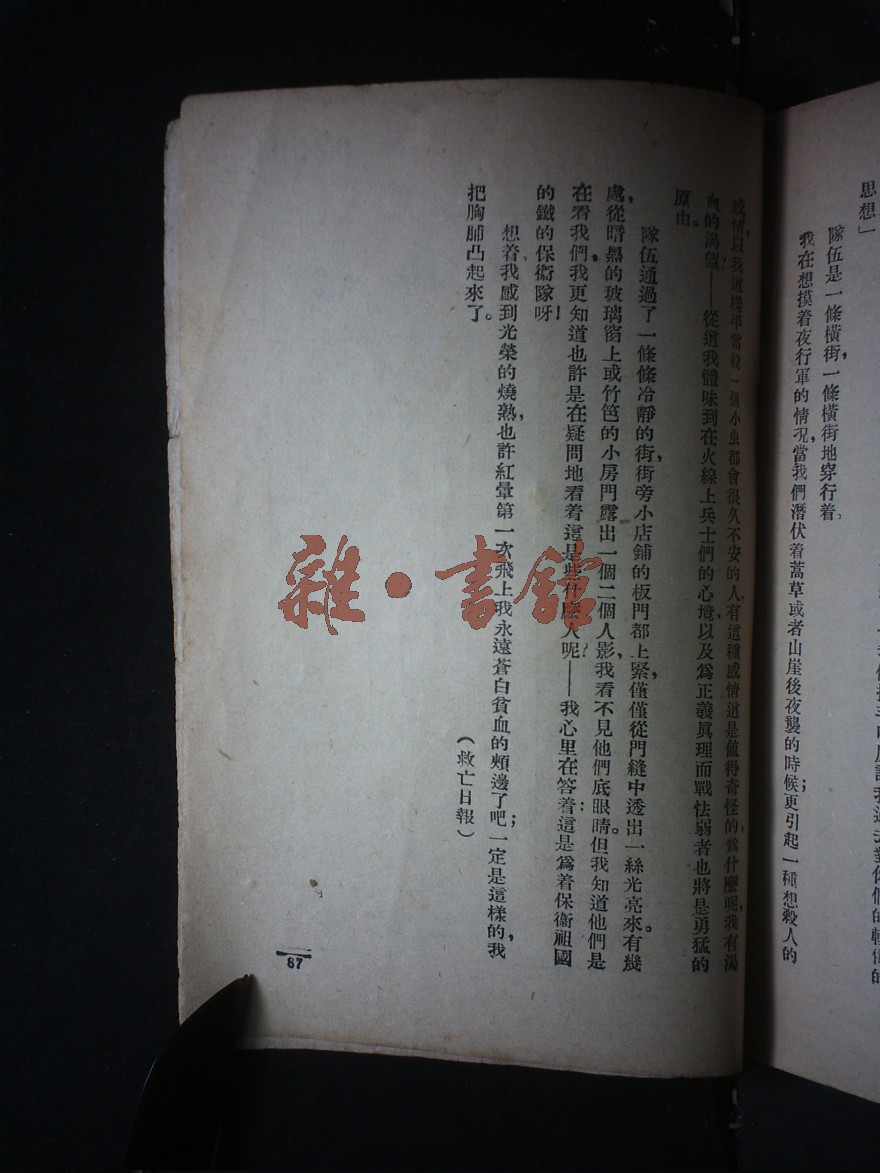 思想」
隊伍是一條橫街，一條橫街地穿行着。
我在想摸着夜行軍的情況，當我們潛伏着蒿草或者山崖後夜襲的時候更引起一種想殺人的
感情，以我這樣平常殺一個小虫都會很久不安的人，有這種感情這是值得奇怪的，爲什麼呢？我有渴
血的渴望——從這我體味到在火線上兵士們的心境，以及爲正義眞理而戰怯弱者也將是勇猛的
原由。
隊伍通過了一條條冷靜的街，街旁小店鋪的板門都上緊，僅僅從門縫中透出一絲光亮來。有幾
處，從暗㬎的玻璃窗上或竹笆的小房門露出一個二個人影，我看不見他們底眼睛。但我知道他們是
在看我們，我更知道也許是在疑問地看着這是些什麼人呢？——我心里在答着：這是爲着保衞祖國
的鐵的保衞隊呀！
想着，我感到光榮的燒熱，也許紅暈第一次飛上我永遠蒼白貧血的頰邊了吧；一定是這樣的，我
把胸脯凸起來了。
（救亡日報）
87
雜·書館